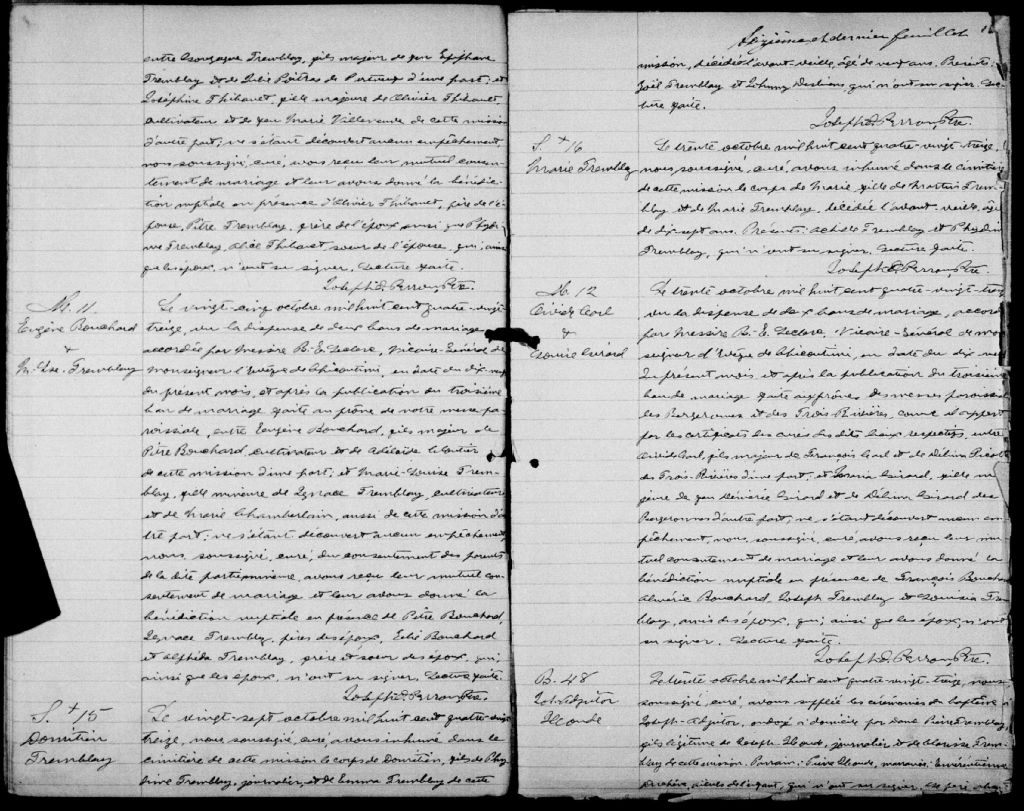 entre Gonzague Tremblay, fils majeur de feu Epiphane
Tremblay et de Julie Poitras de Portneuf d'une part, et
Joséphine Thibault, fille majeure de Olivier Thibault,
cultivateur et de feu Marie Villeneuve de cette mission
d'autre part; ne s'étant découvert aucun empêchement,
nous soussigné, curé, avons reçu leur mutuel consen-
tement de mariage et leur avons donné la bénédic-
tion nuptiale en présence d'Olivier Thibault, père de l'é-
pouse, Pitre Tremblay, frère de l'époux ainsi que
Tremblay, Thibault, soeur de l'épouse, qui, ainsi
que les époux, n'ont su signer. Lecture faite.
Joseph E. Perron, Ptre.
M. 11
Eugène Bouchard
+
M.-Lse. Tremblay
Le vingt-cinq octobre mil huit cent quatre-vingt-
treize, vu la dispense de deux bans de mariage
accordée par Messire B.-E. Leclerc, Vicaire-Général de
Monseigneur l'Evêque de Chicoutimi, en date du dix neuf
du présent mois, et après la publication du troisième
ban de mariage faite au prône de notre messe pa-
roissiale, entre Eugène Bouchard, fils majeur de
Pitre Bouchard, cultivateur et de Adélaïde
de cette mission d'une part, et Marie-Louise Trem-
blay, fille mineure de Ignace Tremblay, cultivateur
et de Marie Chamberlain, aussi de cette mission d'au-
tre part; ne s'étant découvert aucun empêchement,
nous, soussigné, curé, du consentement des parents
de la dite partie mineure, avons reçu leur mutuel con-
sentement de mariage et leur avons donné la
bénédiction nuptiale en présence de Pitre Bouchard,
Ignace Tremblay, pères des époux, Bouchard
et Alphida Tremblay, frère et soeur des époux, qui,
ainsi que les époux, n'ont su signer. Lecture faite.
Joseph E. Perron Ptre
S. + 15
Domitien
Tremblay
Le vingt-sept octobre mil huit cent quatre-vingt
treize, nous, soussigné, curé, avons inhumé dans le
cimetière de cette mission le corps de Domitien, fils de
Tremblay, journalier, et de Emma Tremblay de cette
et dernier feuillet
mission, décédé l'avant-veille, âgé de neuf ans. Présents:
Joël Tremblay et Johnny Desbiens qui n'ont su signer. Lec-
ture faite.
Joseph E. Perron, Ptre.
S. + 16
Marie Tremblay
Le trente octobre mil huit cent quatre-vingt-treize,
nous, soussigné, curé, avons inhumé dans le cimetière
de cette mission le corps de Marie, fille de Martin Trem-
blay, et de Marie Tremblay, décédée l'avant-veille, âgée
de dix sept ans. Présents: Achille Tremblay et
Tremblay, qui n'ont su signer. Lecture faite.
Joseph E. Perron Ptre.
M. 12
&
Girard
Le trente octobre mil huit cent quatre-vingt-treize
vu la dispense de deux bans de mariage, accordée
par Messire B.-E. Leclerc, Vicaire-Général de Mon-
seigneur l'Evêque de Chicoutimi, en date du dix neuf
du présent mois et après la publication du troisième
ban de mariage faite aux prônes des messes paroissia-
les Bergeronnes et des Trois Rivières, comme il appert
par les certificats des curés des dits lieux respectifs, entre
fils majeur de François et de
des Trois-Rivières d'une part, et Girard, fille ma-
jeure de feu Girard et de Girard des
Bergeronnes d'autre part; ne s'étant découvert aucun em-
pêchement, nous, soussigné, curé, avons reçu leur mu-
tuel consentement de mariage et leur avons donné la
bénédiction nuptiale en présence de François Bouchard
Almérie Bouchard, Joseph Tremblay et Trem-
blay, amis des époux, qui, ainsi que les époux, n'ont
su signer. Lecture faite.
Joseph E. Perron Ptre.
B. 48
Jos-Adjutor
Le trente octobre mil huit cent quatre-vingt-treize, nous,
soussigné, curé, avons suppléé les cérémonies du baptême à
Joseph-Adjutor, ondoyé à domicile par Tremblay,
fils légitime de Joseph journalier et de Trem-
blay de cette mission. Parrain: Pierre marraine:
de l'enfant, qui n'ont su signer. Le père